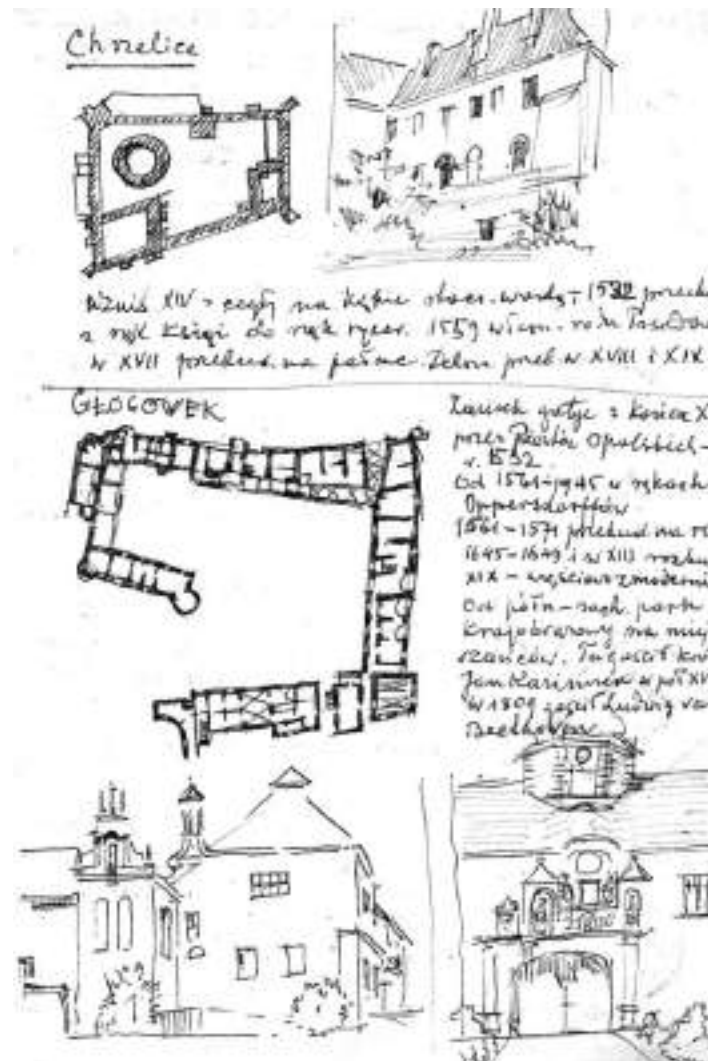 Chrzelice
Wznieś XIV z cegły na kępie otocz. wodą - 1532 przech
z rąk Księżi do rąk rycer. 1559 własn. rodu
w XVII przebud. na pałac. Potem przeb. w XVIII i XIX
GŁOGOWEK
Zamek gotyc z końca X
przez Piastów Opolskich -
r. 1532
Od 1561-1945 w rękach
Oppersdorffów
1561 - 1571 przebud na re
1645-1649 i w XIII rozbu
XIX - częściowo zmoderni
Od półn-zach. park
Krajobrazowy na miej
szańców. Tu gościł kró
Jan Kazimierz w poł XV
w 1809 gościł Ludwig va
Beethoven